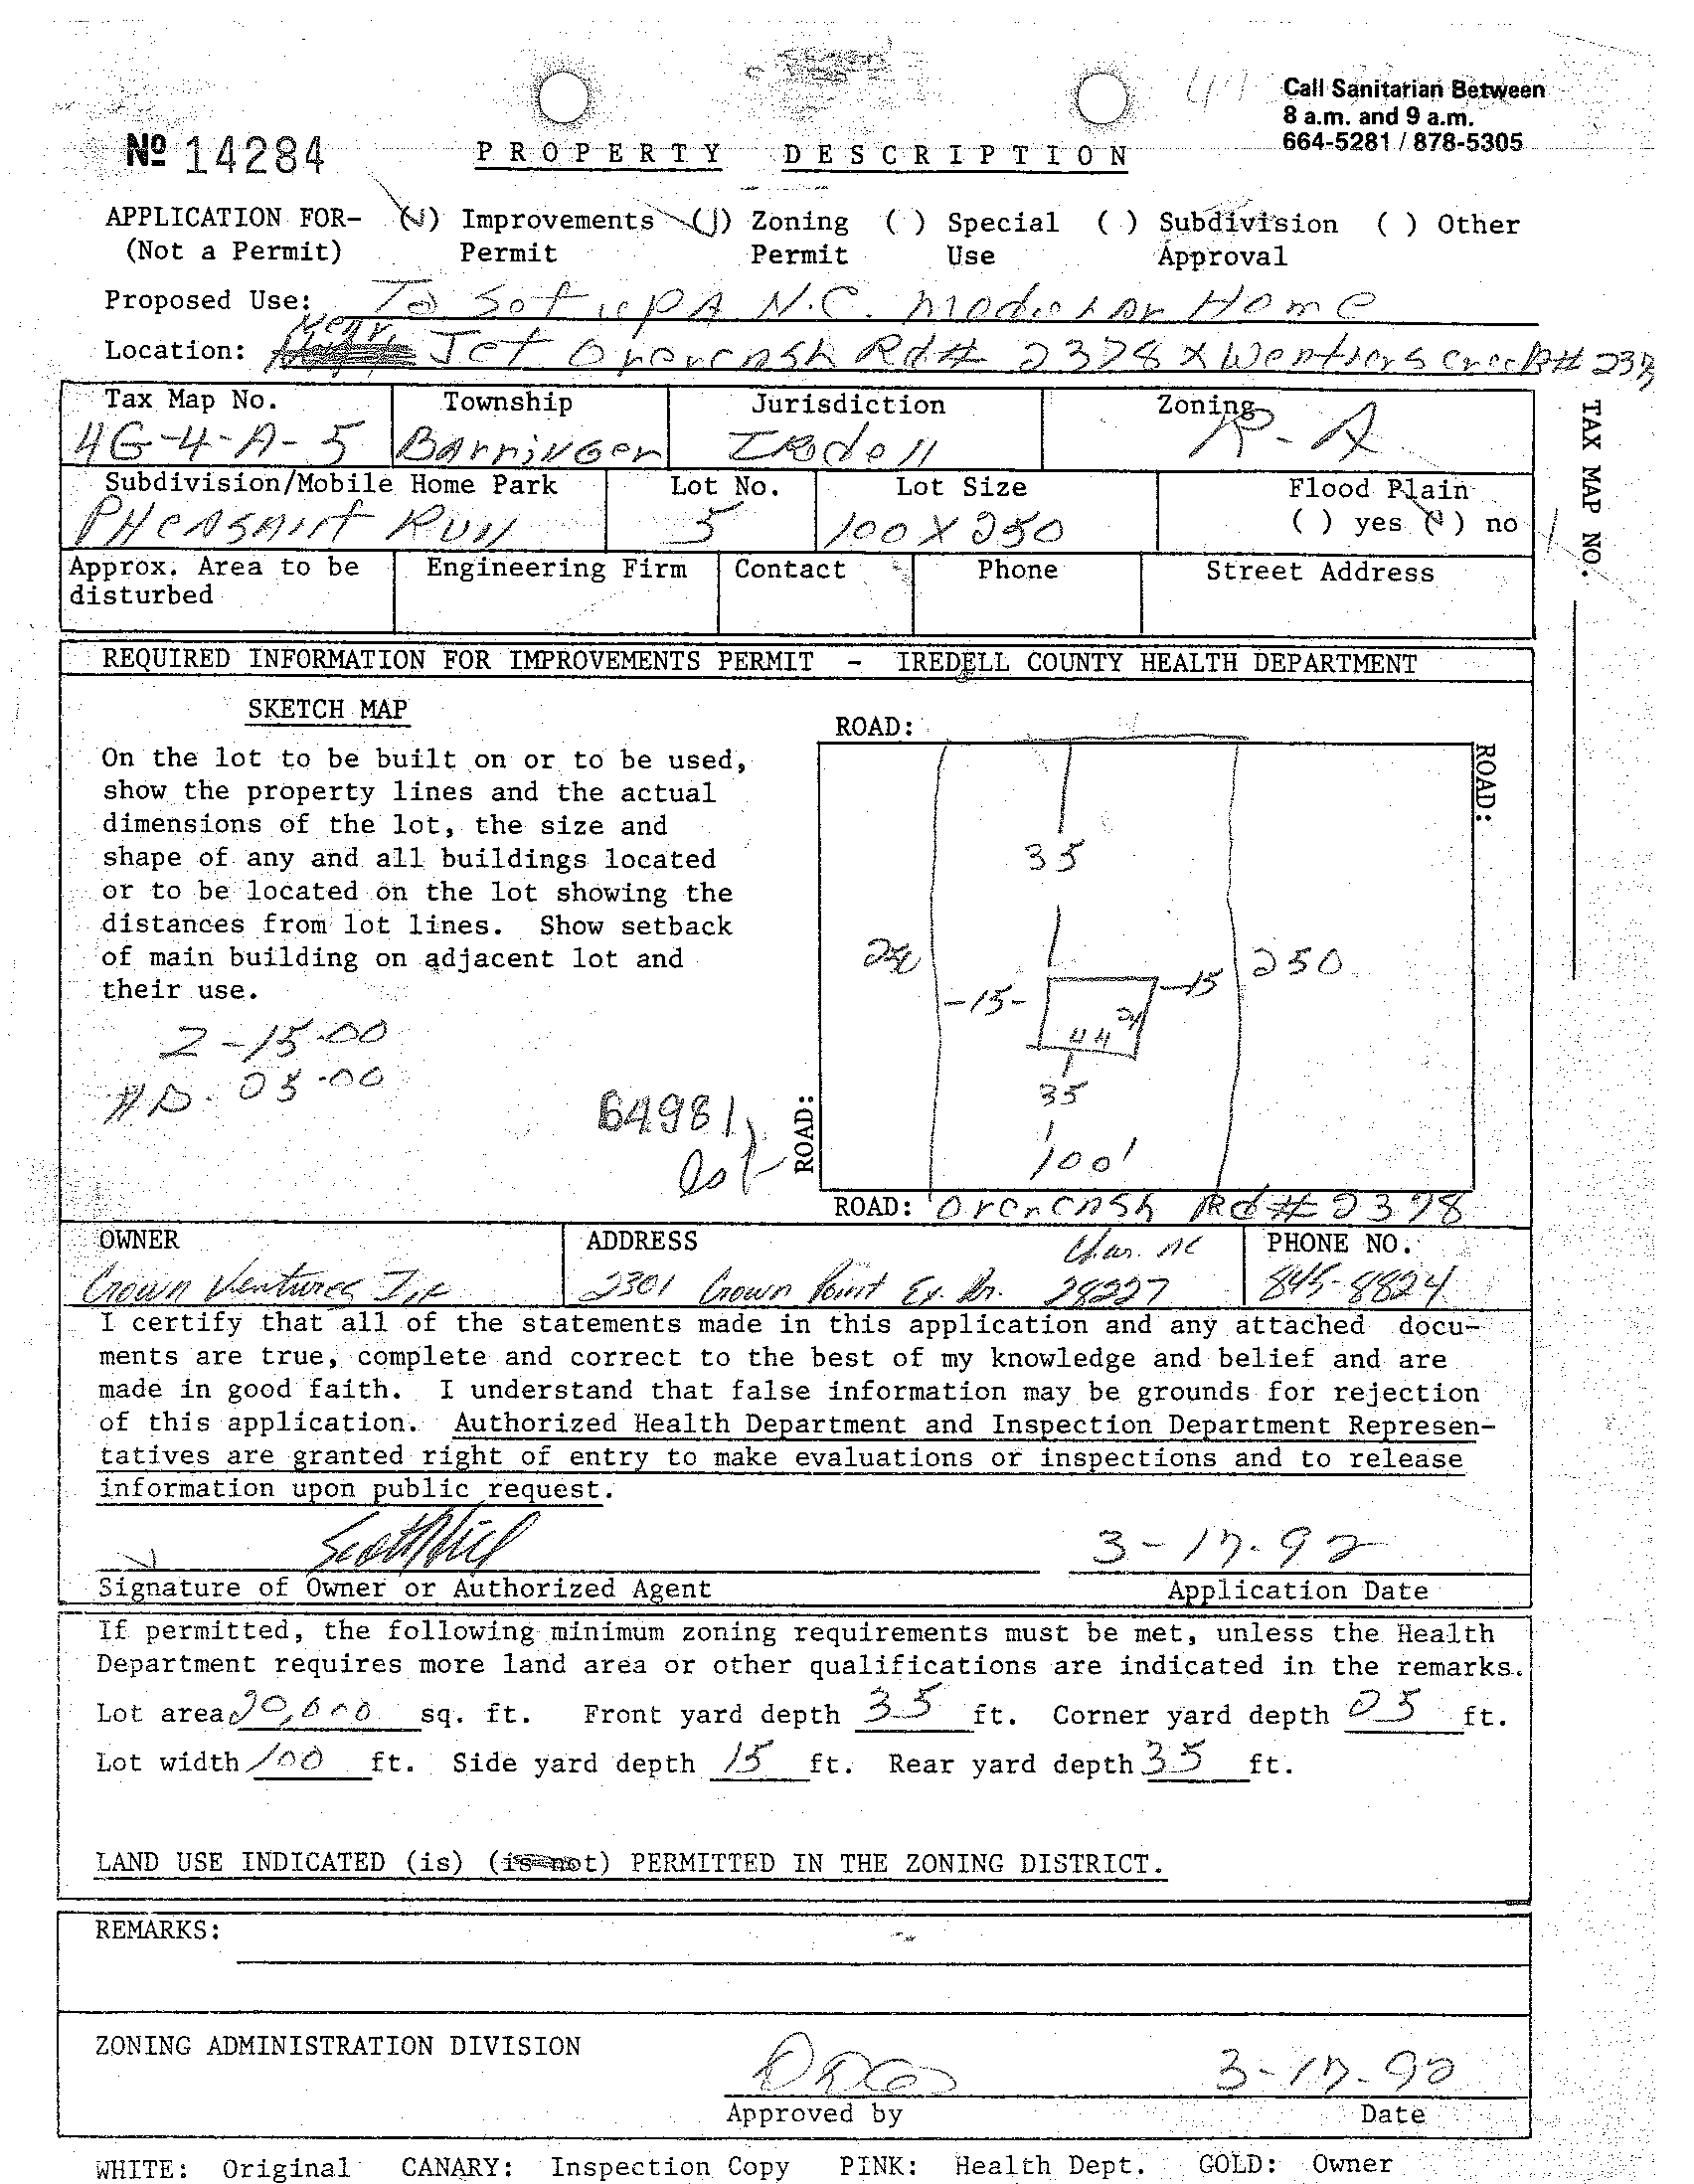 Call Sanitarian Between
8 a.m. and 9 a.m.
664-5281 / 878-5305
Nº 14284
PROPERTY DESCRIPTION
APPLICATION FOR- (√) Improvements (√) Zoning ( ) Special ( ) Subdivision ( ) Other
(Not a Permit) Permit Permit Use Approval
Proposed Use: To Set up A N.C. Modular Home
Location: Near Jct Rd# 2378 x Creek#
Tax Map No. Township Jurisdiction Zoning
4G-4-A-5 Barringer Iredell R-A
Subdivision/Mobile Home Park Lot No. Lot Size Flood Plain
PHEASANT RUN 5 100 X 250 ( ) yes (√) no
Approx. Area to be Engineering Firm Contact Phone Street Address
disturbed
TAX MAP NO.
REQUIRED INFORMATION FOR IMPROVEMENTS PERMIT - IREDELL COUNTY HEALTH DEPARTMENT
SKETCH MAP
On the lot to be built on or to be used,
show the property lines and the actual
dimensions of the lot, the size and
shape of any and all buildings located
or to be located on the lot showing the
distances from lot lines. Show setback
of main building on adjacent lot and
their use.
Z-15.00
H.D. 05.00
64981
ROAD:
ROAD:
35
250
250
-15-
-15
24
44
35
100'
ROAD:
ROAD: Rd# 2378
OWNER ADDRESS PHONE NO.
Char. NC
Crown Ventures 2301 Crown Point Ex. Dr. 28227 845-8824
I certify that all of the statements made in this application and any attached docu-
ments are true, complete and correct to the best of my knowledge and belief and are
made in good faith. I understand that false information may be grounds for rejection
of this application. Authorized Health Department and Inspection Department Represen-
tatives are granted right of entry to make evaluations or inspections and to release
information upon public request.
3-17-92
Signature of Owner or Authorized Agent Application Date
If permitted, the following minimum zoning requirements must be met, unless the Health
Department requires more land area or other qualifications are indicated in the remarks.
Lot area 20,000 sq. ft. Front yard depth 35 ft. Corner yard depth 25 ft.
Lot width 100 ft. Side yard depth 15 ft. Rear yard depth 35 ft.
LAND USE INDICATED (is) (is not) PERMITTED IN THE ZONING DISTRICT.
REMARKS:
ZONING ADMINISTRATION DIVISION
3-17-92
Approved by Date
WHITE: Original CANARY: Inspection Copy PINK: Health Dept. GOLD: Owner